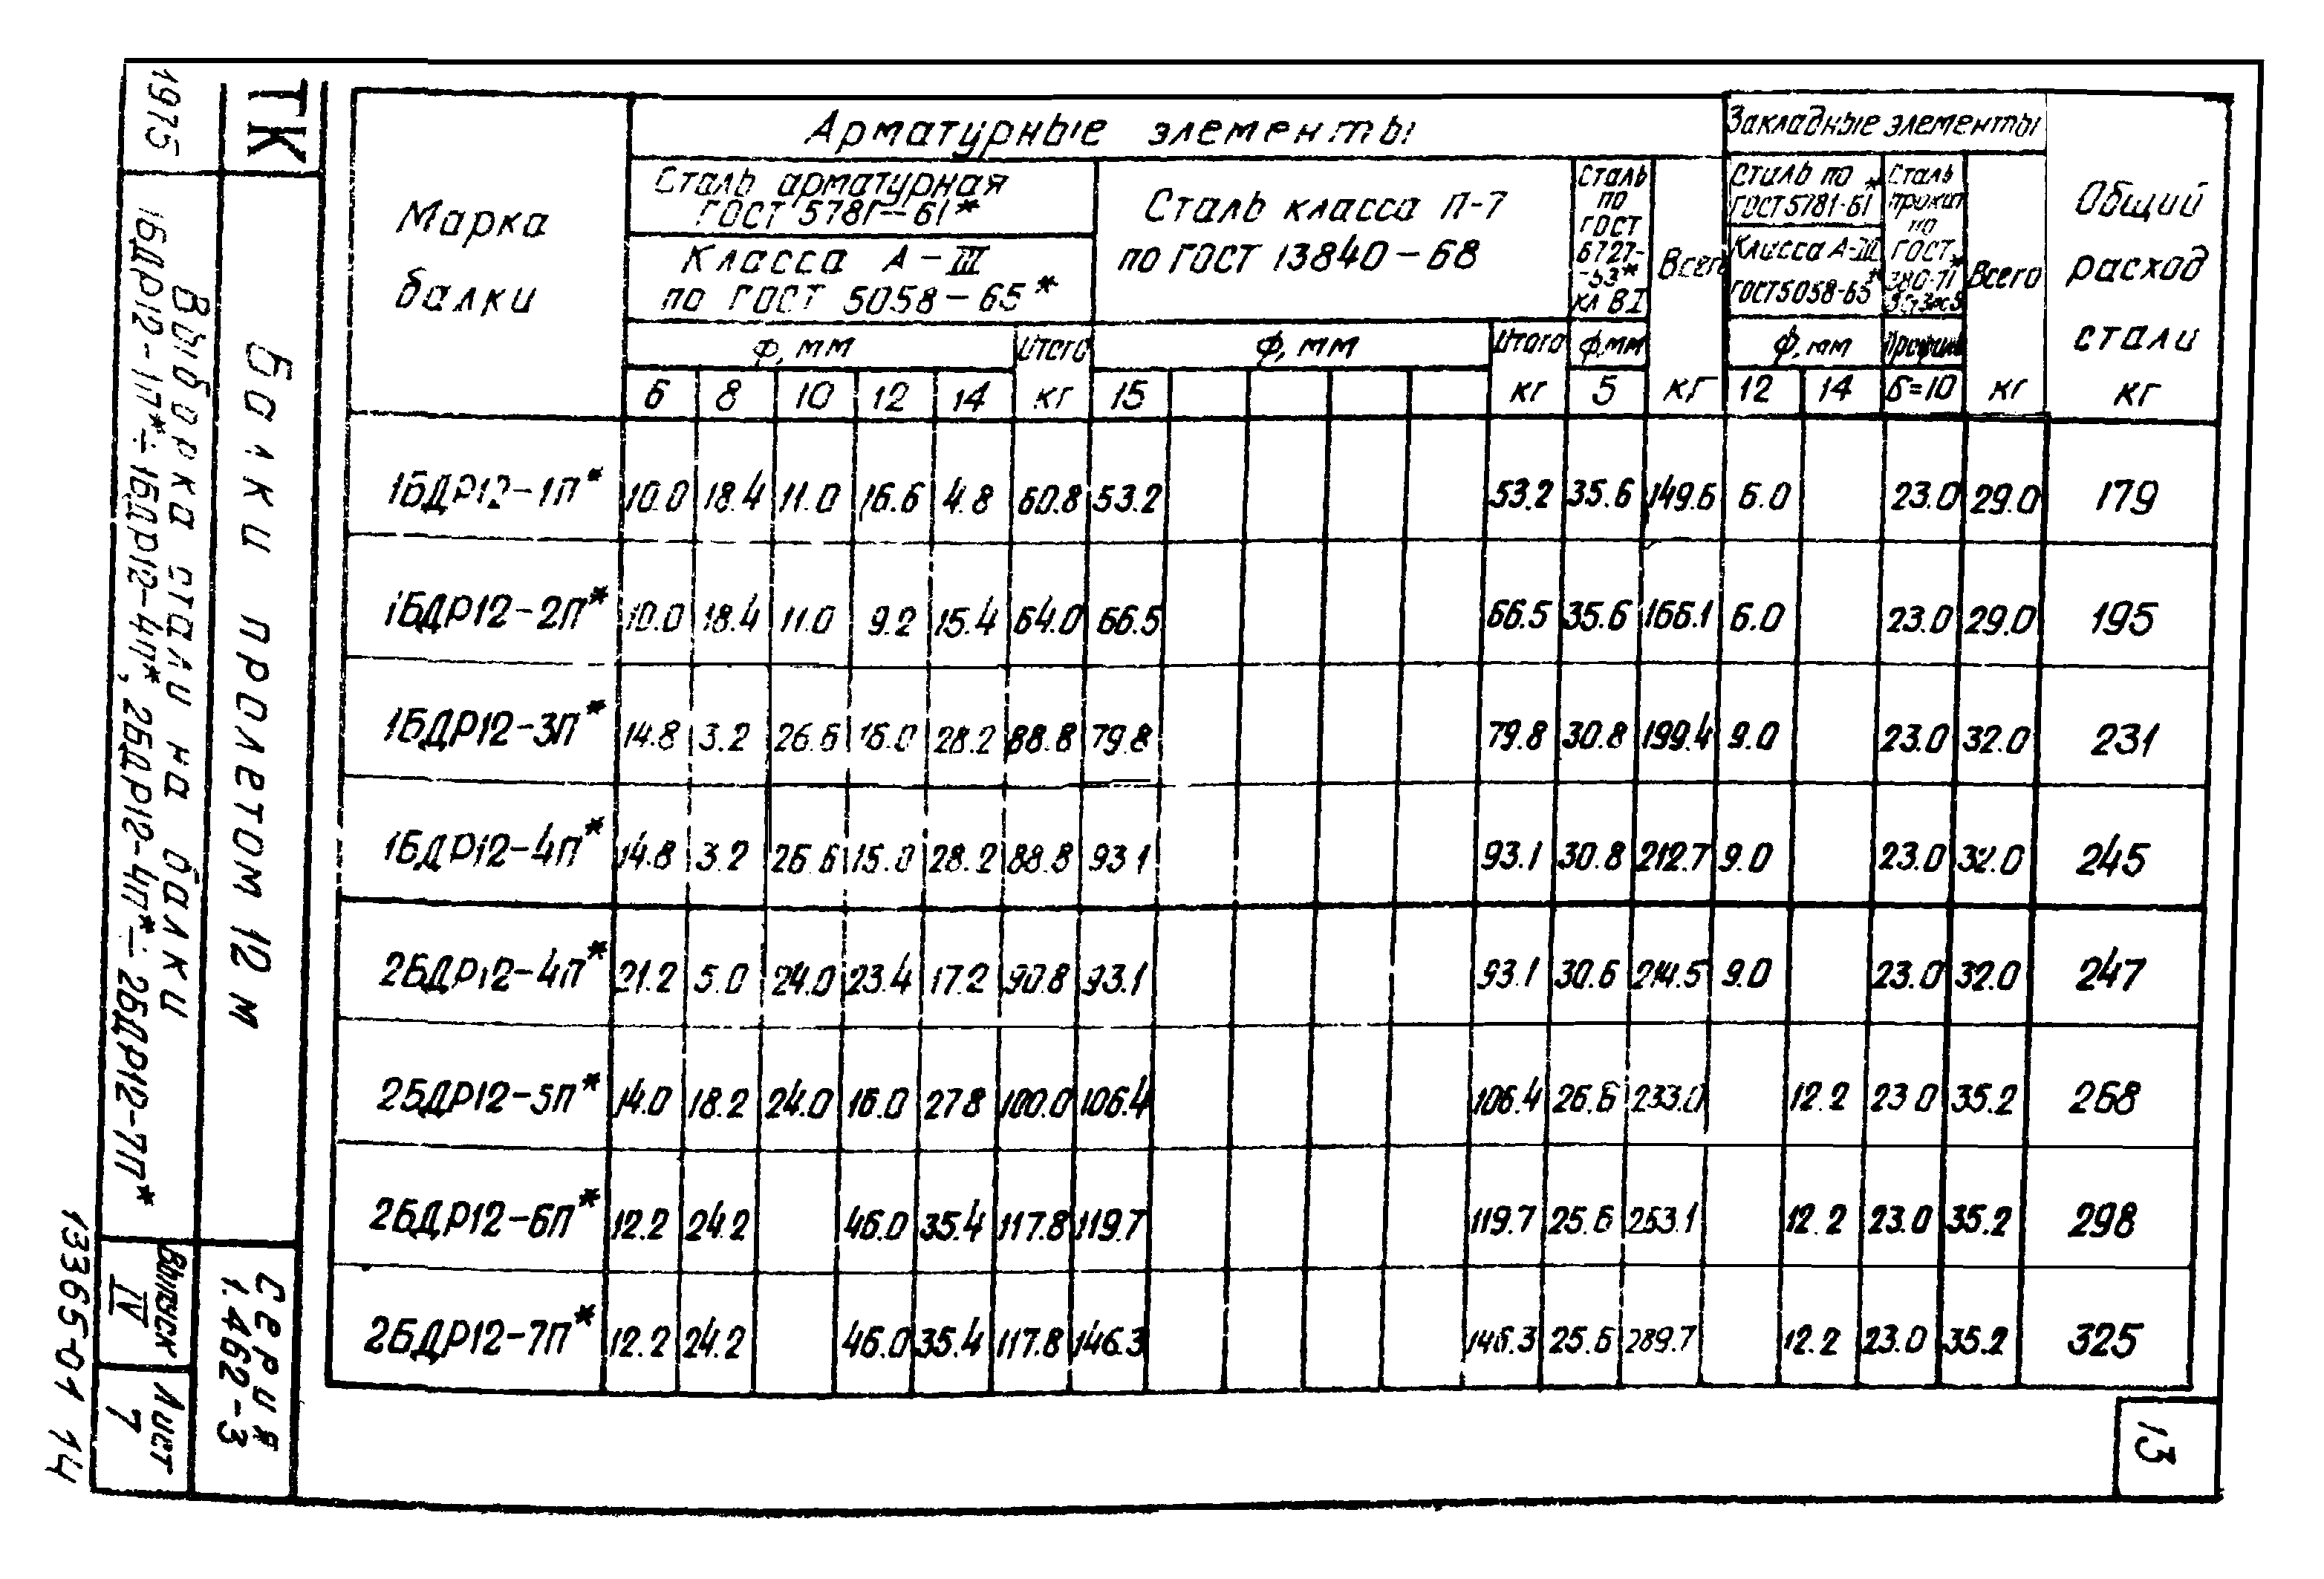 Марка
балки
Арматурные элементы
Закладные элементы
Общий
расход
стали
кг
Сталь арматурная
ГОСТ 5781-61*
Класса А-III
по ГОСТ 5058-65*
Сталь класса П-7
по ГОСТ 13840-68
Сталь
по
ГОСТ
6727-
-53*
кл ВI
Всего
кг
Сталь по
ГОСТ 5781-61*
Класса А-III
ГОСТ 5058-65*
Сталь
прокат
по
ГОСТ
380-71*
Всего
кг
ф, мм
Итого
кг
ф, мм
Итого
кг
ф, мм
ф, мм
Профиль
6 8 10 12 14 15 5 12 14 δ=10
1БДР12-1П* 10.0 18.4 11.0 16.6 4.8 60.8 53.2 53.2 35.6 149.6 6.0 23.0 29.0 179
1БДР12-2П* 10.0 18.4 11.0 9.2 15.4 64.0 66.5 66.5 35.6 166.1 6.0 23.0 29.0 195
1БДР12-3П* 14.8 3.2 26.6 16.0 28.2 88.8 79.8 79.8 30.8 199.4 9.0 23.0 32.0 231
1БДР12-4П* 14.8 3.2 26.6 16.0 28.2 88.8 93.1 93.1 30.8 212.7 9.0 23.0 32.0 245
2БДР12-4П* 21.2 5.0 24.0 23.4 17.2 90.8 93.1 93.1 30.6 214.5 9.0 23.0 32.0 247
2БДР12-5П* 14.0 18.2 24.0 16.0 27.8 100.0 106.4 106.4 26.6 233.0 12.2 23.0 35.2 268
2БДР12-6П* 12.2 24.2 46.0 35.4 117.8 119.7 119.7 25.6 263.1 12.2 23.0 35.2 298
2БДР12-7П* 12.2 24.2 46.0 35.4 117.8 146.3 146.3 25.6 289.7 12.2 23.0 35.2 325
ТК
1975
Балки пролетом 12 м
Выборка стали на балки
1БДР12-1П*÷1БДР12-4П*, 2БДР12-4П*÷2БДР12-7П*
Серия
1.462-3
Выпуск
IV
Лист
7
13365-01 14
13